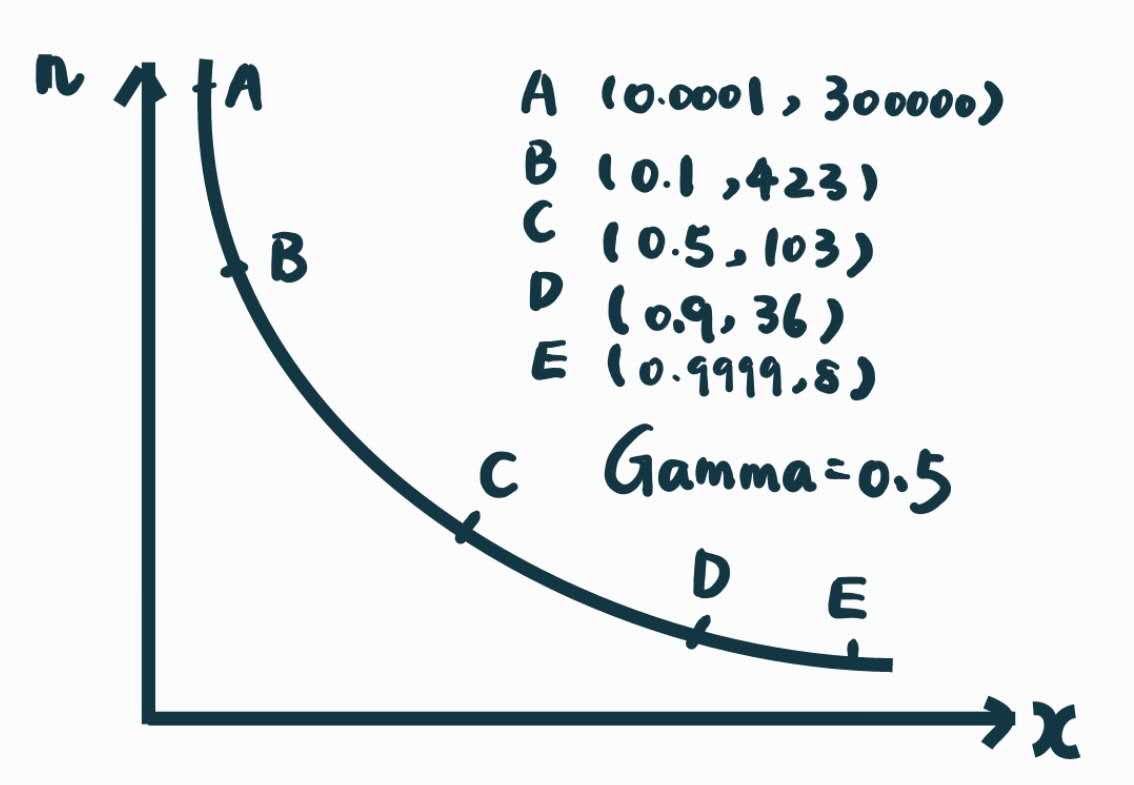 n
A
B
C
D
E
x
A (0.0001, 300000)
B (0.1, 423)
C (0.5, 103)
D (0.9, 36)
E (0.9999, 8)
Gamma=0.5